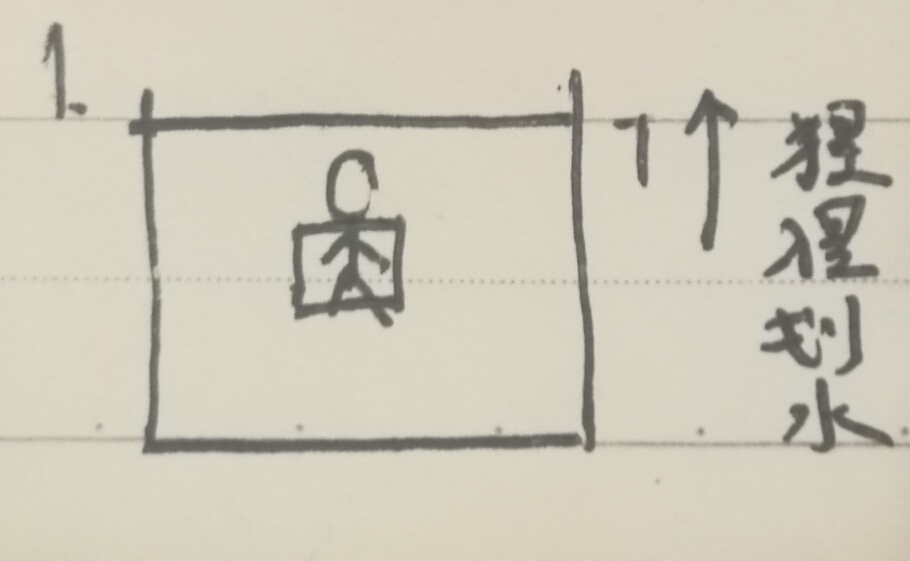 1.
猩
猩
划
水